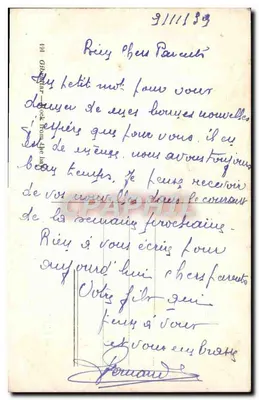 9/11/39
Bien chers Parents
Un petit mot pour vous
donner de mes bonnes nouvelles
j'espère que pour vous il en
est de même. nous avons toujours
beau temps. Je pense recevoir
de vos nouvelles dans le courant
de la semaine prochaine.
Rien à vous écrire pour
aujourd'hui chers parents
Votre fils qui
pense à vous
et vous embrasse
Fernand